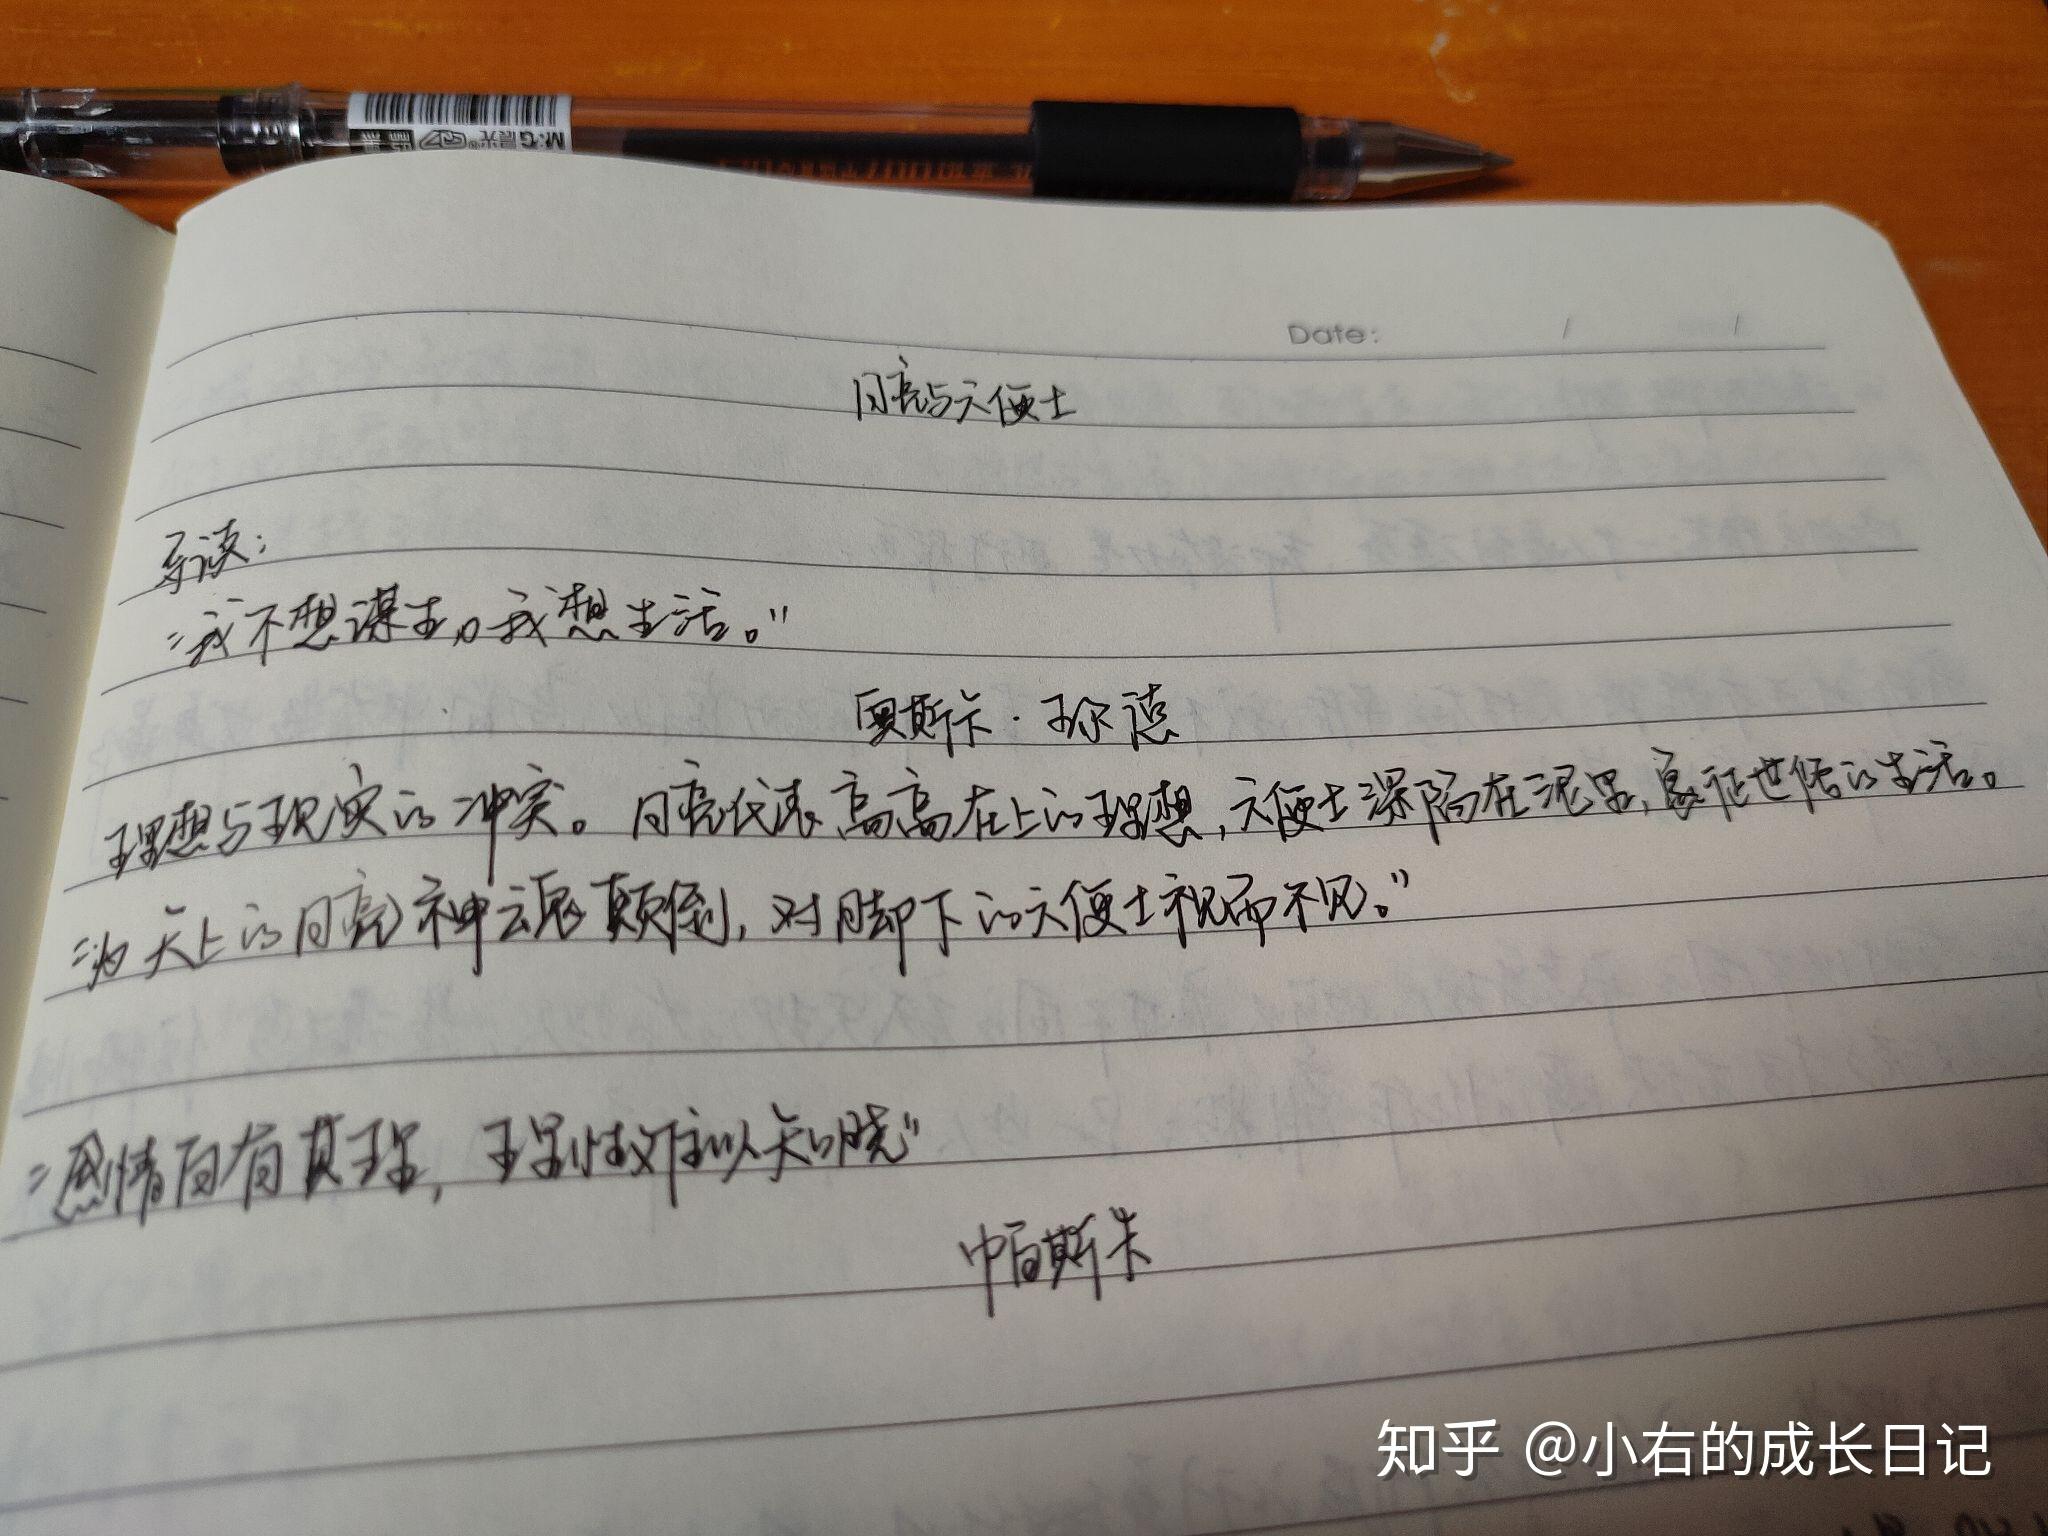 M&G晨光
Date: / /
月亮与六便士
导读:
"我不想谋生,我想生活。"
奥斯卡·王尔德
理想与现实的冲突。月亮代表高高在上的理想,六便士深陷在泥里,象征世俗的生活。
"为天上的月亮神魂颠倒,对脚下的六便士视而不见。"
"感情自有其理,理性难以知晓"
帕斯卡
知乎 @小右的成长日记